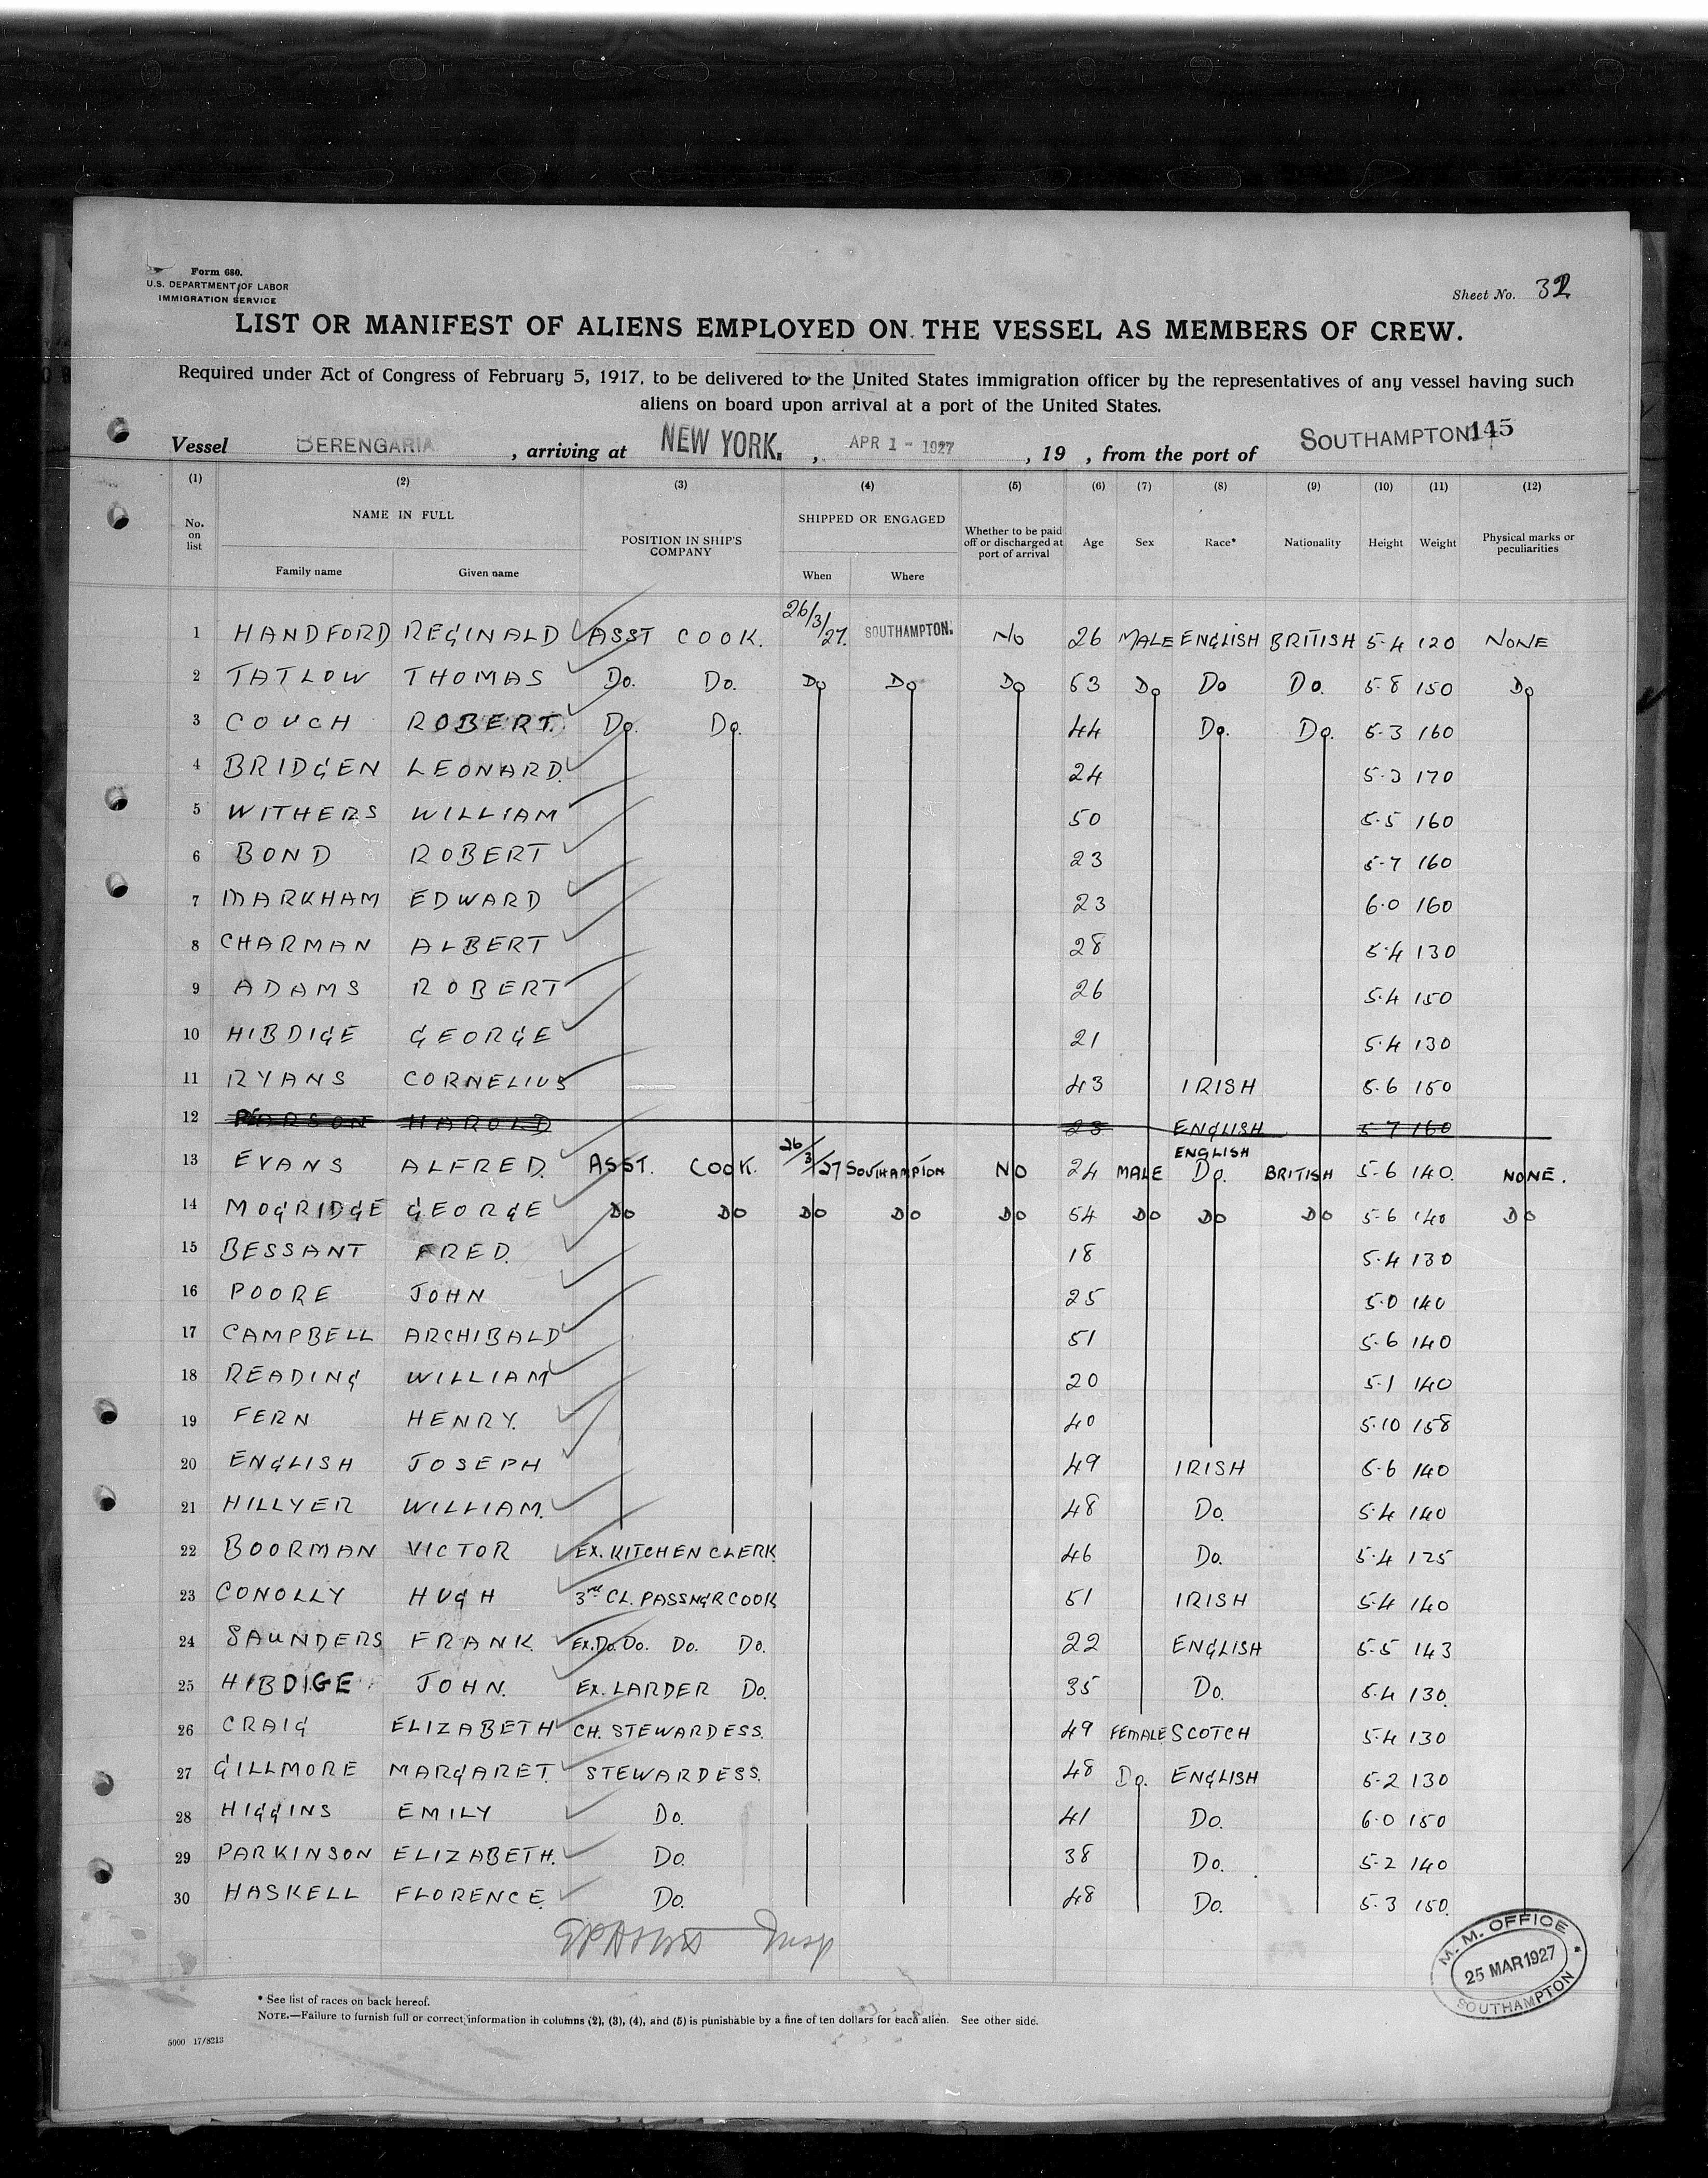 Form 680.
U.S. DEPARTMENT OF LABOR
IMMIGRATION SERVICE
Sheet No. 32
LIST OR MANIFEST OF ALIENS EMPLOYED ON THE VESSEL AS MEMBERS OF CREW.
Required under Act of Congress of February 5, 1917, to be delivered to the United States immigration officer by the representatives of any vessel having such
aliens on board upon arrival at a port of the United States.
Vessel BERENGARIA, arriving at NEW YORK., APR 1 - 1927, 19 , from the port of SOUTHAMPTON 145
(1) (2) (3) (4) (5) (6) (7) (8) (9) (10) (11) (12)
No. on list NAME IN FULL POSITION IN SHIP'S COMPANY SHIPPED OR ENGAGED Whether to be paid off or discharged at port of arrival Age Sex Race* Nationality Height Weight Physical marks or peculiarities
Family name Given name When Where
1 HANDFORD REGINALD ASST COOK. 26/3/27. SOUTHAMPTON. NO 26 MALE ENGLISH BRITISH 5-4 120 NONE
2 TATLOW THOMAS Do. Do. Do Do Do 53 Do Do Do. 5-8 150 Do
3 COUCH ROBERT. Do. Do. 44 Do. Do. 5-3 160
4 BRIDGEN LEONARD. 24 5-3 170
5 WITHERS WILLIAM 50 5-5 160
6 BOND ROBERT 23 5-7 160
7 MARKHAM EDWARD 23 6-0 160
8 CHARMAN ALBERT 28 5-4 130
9 ADAMS ROBERT 26 5-4 150
10 HIBDIGE GEORGE 21 5-4 130
11 RYANS CORNELIUS 43 IRISH 5-6 150
12 PEARSON HAROLD 25 ENGLISH 5-7 160
13 EVANS ALFRED. ASST. COOK. 26/3/27 SOUTHAMPTON NO 24 MALE ENGLISH Do. BRITISH 5-6 140. NONE.
14 MOGRIDGE GEORGE DO DO DO DO DO 54 DO DO DO 5-6 140 DO
15 BESSANT FRED. 18 5-4 130
16 POORE JOHN 25 5-0 140
17 CAMPBELL ARCHIBALD 51 5-6 140
18 READING WILLIAM 20 5-1 140
19 FERN HENRY. 40 5-10 158
20 ENGLISH JOSEPH 49 IRISH 5-6 140
21 HILLYER WILLIAM. 48 Do. 5-4 140
22 BOORMAN VICTOR EX. KITCHEN CLERK 46 Do. 5-4 125
23 CONOLLY HUGH 3rd CL. PASSNGR COOK 51 IRISH 5-4 140
24 SAUNDERS FRANK Ex. Do. Do. Do. Do. 22 ENGLISH 5-5 143
25 HIBDIGE JOHN. EX. LARDER Do. 35 Do. 5-4 130.
26 CRAIG ELIZABETH CH. STEWARDESS. 49 FEMALE SCOTCH 5-4 130
27 GILLMORE MARGARET. STEWARDESS. 48 Do. ENGLISH 5-2 130
28 HIGGINS EMILY Do. 41 Do. 6-0 150
29 PARKINSON ELIZABETH. Do. 38 Do. 5-2 140
30 HASKELL FLORENCE. Do. 48 Do. 5-3 150.
Insp
M. M. OFFICE
25 MAR 1927
SOUTHAMPTON
* See list of races on back hereof.
NOTE.—Failure to furnish full or correct information in columns (2), (3), (4), and (5) is punishable by a fine of ten dollars for each alien. See other side.
5000 17/8213